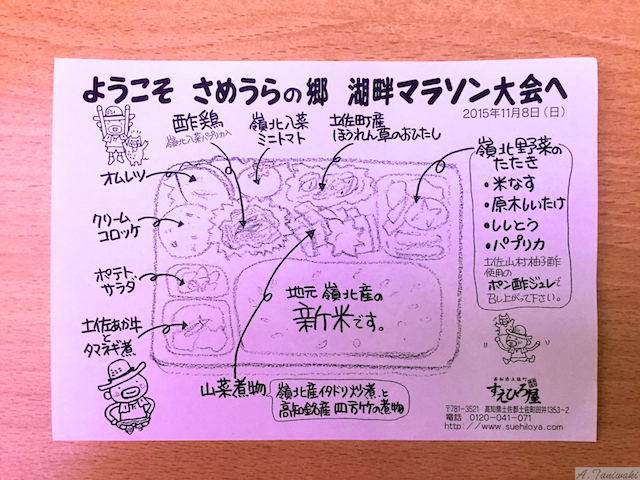 ようこそ さめうらの郷 湖畔マラソン大会へ
2015年11月8日(日)
酢鶏
嶺北八菜パプリカ入
嶺北八菜
ミニトマト
土佐町産
ほうれん草のおひたし
オムレツ
クリーム
コロッケ
ポテト
サラダ
土佐あか牛
と
タマネギ煮
嶺北野菜の
たたき
・米なす
・原木しいたけ
・ししとう
・パプリカ
土佐山村柚子酢
使用の
ポン酢ジュレで
召し上がって下さい。
地元 嶺北産の
新米です。
山菜煮物
嶺北産イタドリ炒煮と
高知銘産 四方竹の煮物
すえひろ屋
〒781-3521 高知県土佐郡土佐町田井1353-2
電話 0120-041-071
http://www.suehiloya.com
A.Taniwaki